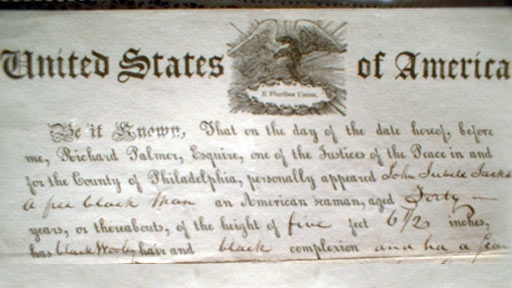 United States of America
E Pluribus Unum.
Be it Known, That on the day of the date hereof, before
me, Richard Palmer, Esquire, one of the Justices of the Peace in and
for the County of Philadelphia, personally appeared John Jacks
A free black Man an American seaman, aged Forty
years, or thereabouts, of the height of five feet 6 1/2 inches,
has black Wooly hair and black complexion and has a